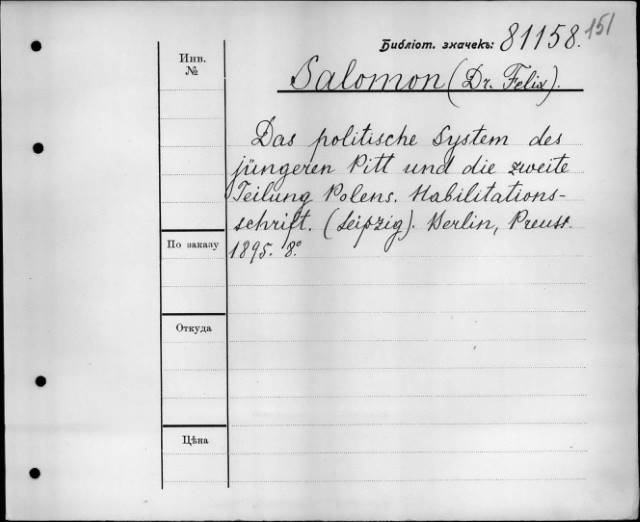 Библіот. значекъ: 81158. 151
Инв. №
Salomon (Dr. Felix).
Das politische System des
jüngeren Pitt und die zweite
Teilung Polens. Habilitations-
schrift. (Leipzig). Berlin, Preuss.
По заказу
1895. 8º.
Откуда
Цѣна